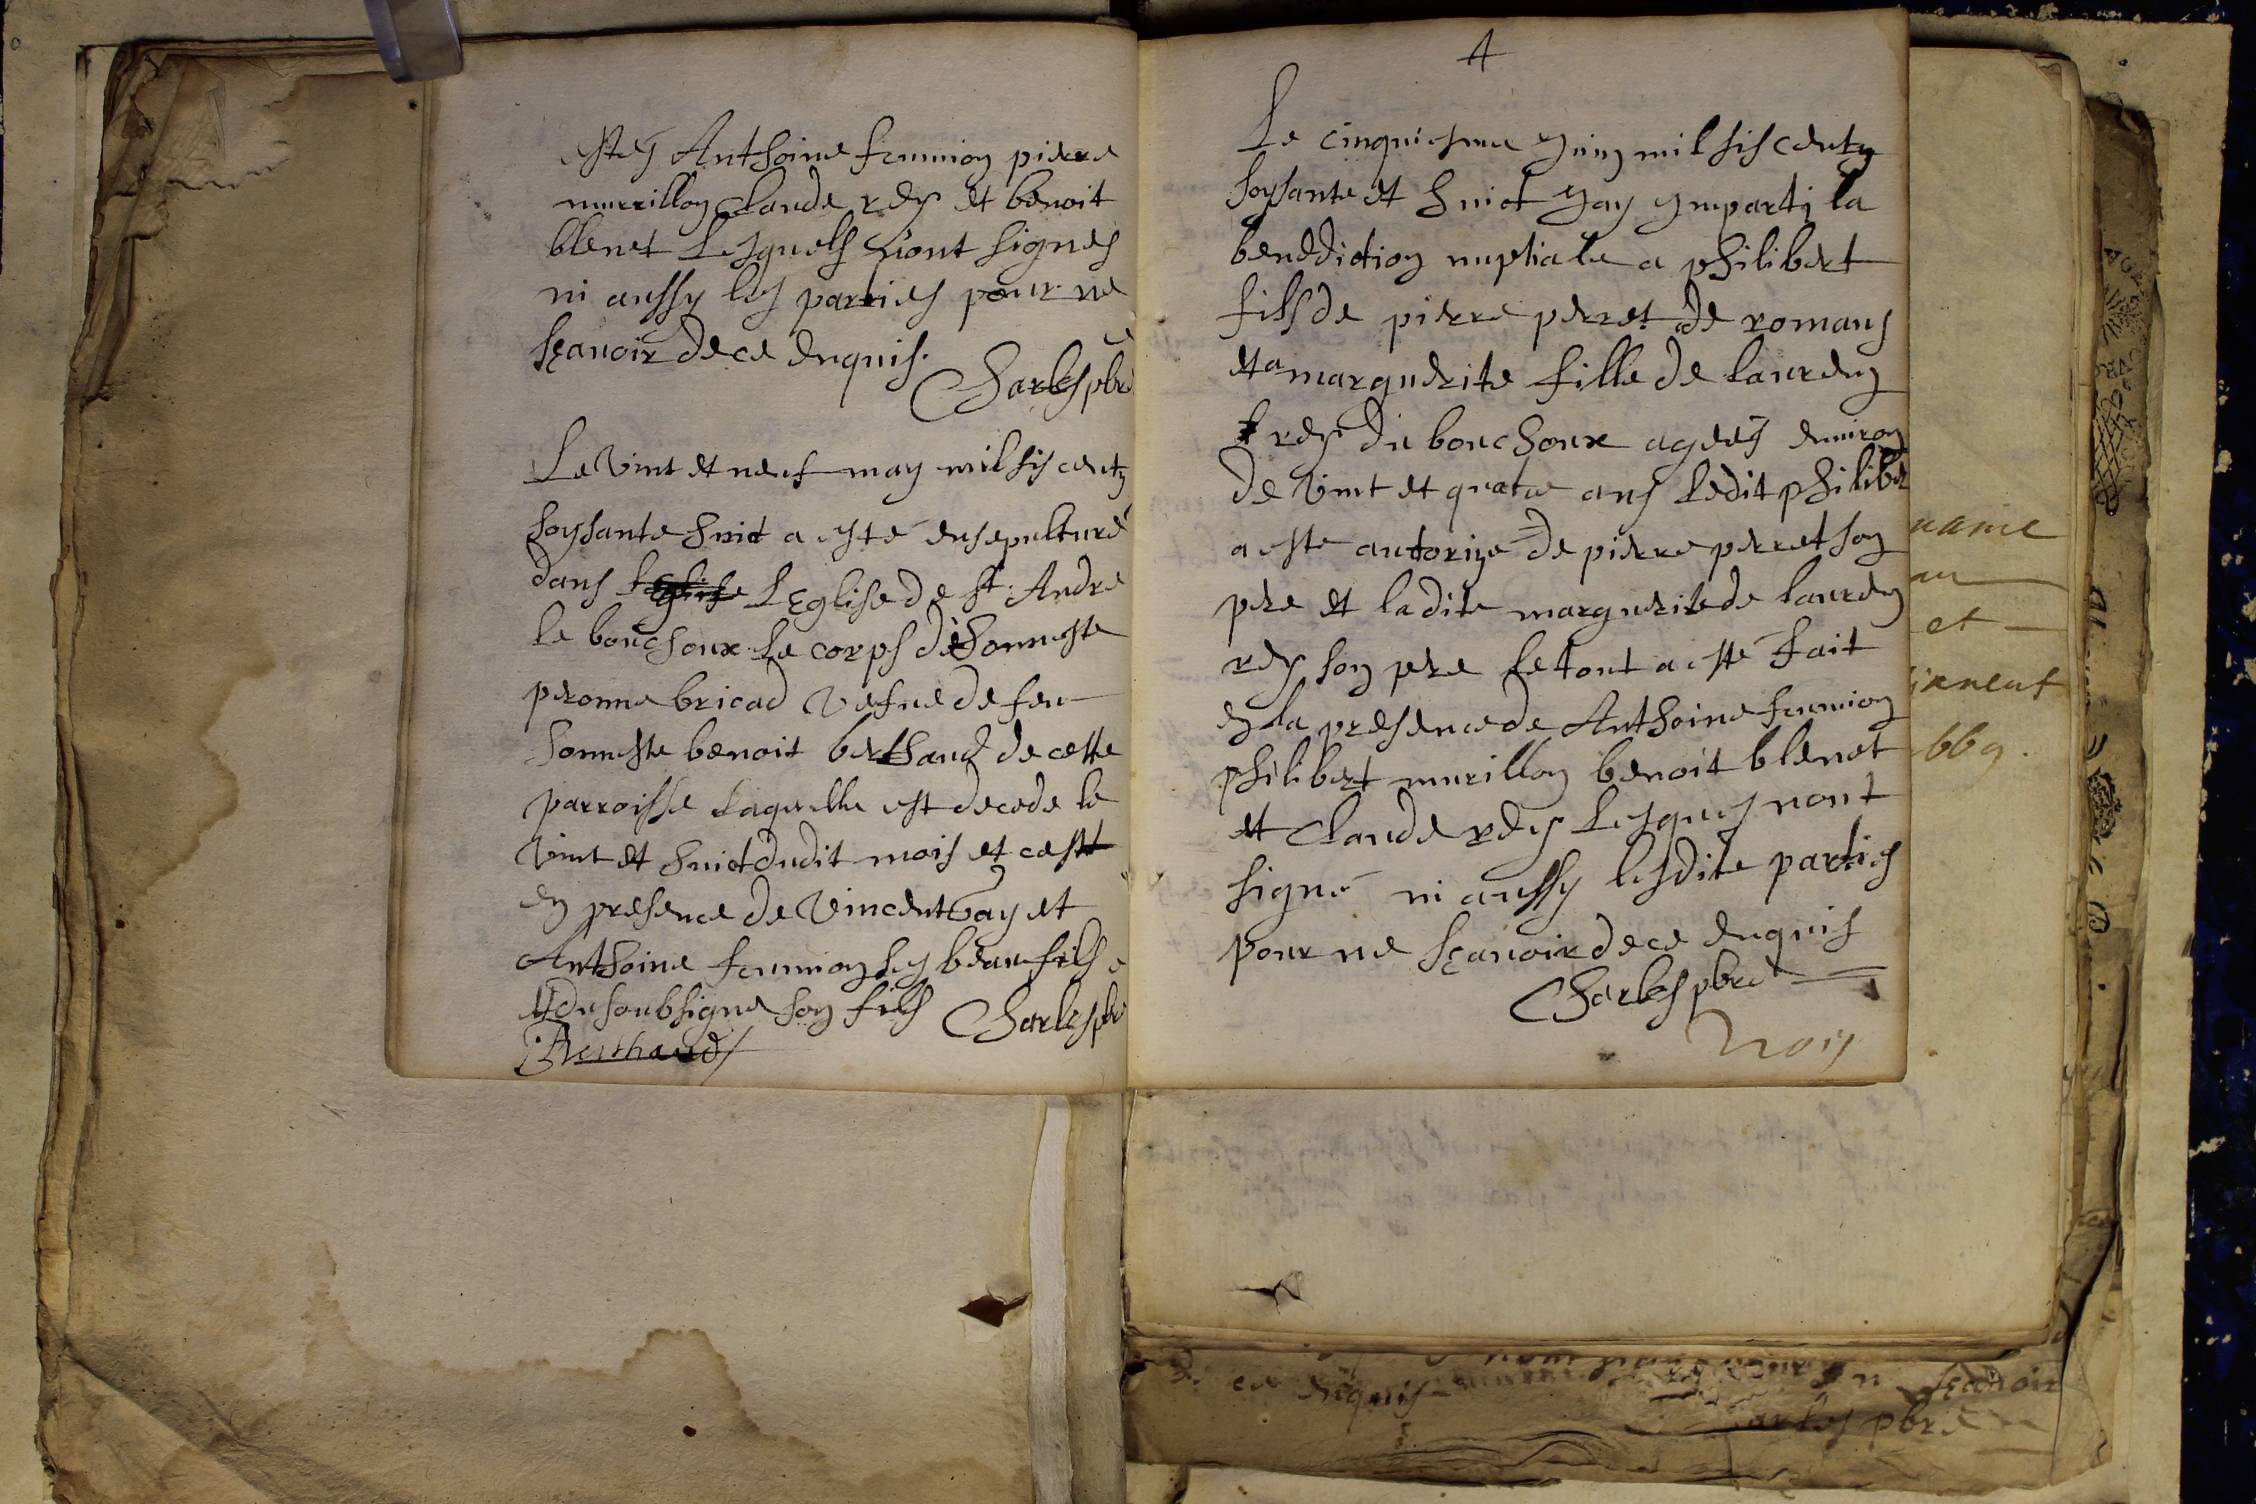 estes Anthoine fennion pierre
murrillon Claude rey et benoit
blenet Lesquels n'ont signes
ni aussy les parties pour ne
sçavoir de ce enquis.
Charles pbre
Le vint et neuf may mil sis centz
soysante huict a esté ensepulturé
dans L'Eglise L'Eglise de st. André
le bouchoux le corps de honneste
peronne bricad vefue de feu
honneste benoit berthaud de cette
parroisse laquelle est decede le
vint et huict dudit mois et ce
en presence de Vincent Gay et
Anthoine fennion ses beau fils
et du soubsigne son fils Charles pbre
Berthaud
4
Le cinquiesme Juin mil sis centz
soysante et huict Jay Imparti la
benediction nuptiale a philibert
fils de pierre perret de romans
et a marguerite fille de lauren
rey du bouchoux agees environ
de vint et quatre ans ledit philiber
a este autorize de pierre perret son
pere et ladite marguerite de lauren
rey son pere le tout a esté fait
en la presence de Anthoine fennion
philibert murillon benoit blenet
et Claude rey Lesques n'ont
signé ni aussy lesdite parties
pour ne sçavoir de ce enquis
Charles pbre
et
669.
ce enquis sçavoir
Charles pbre